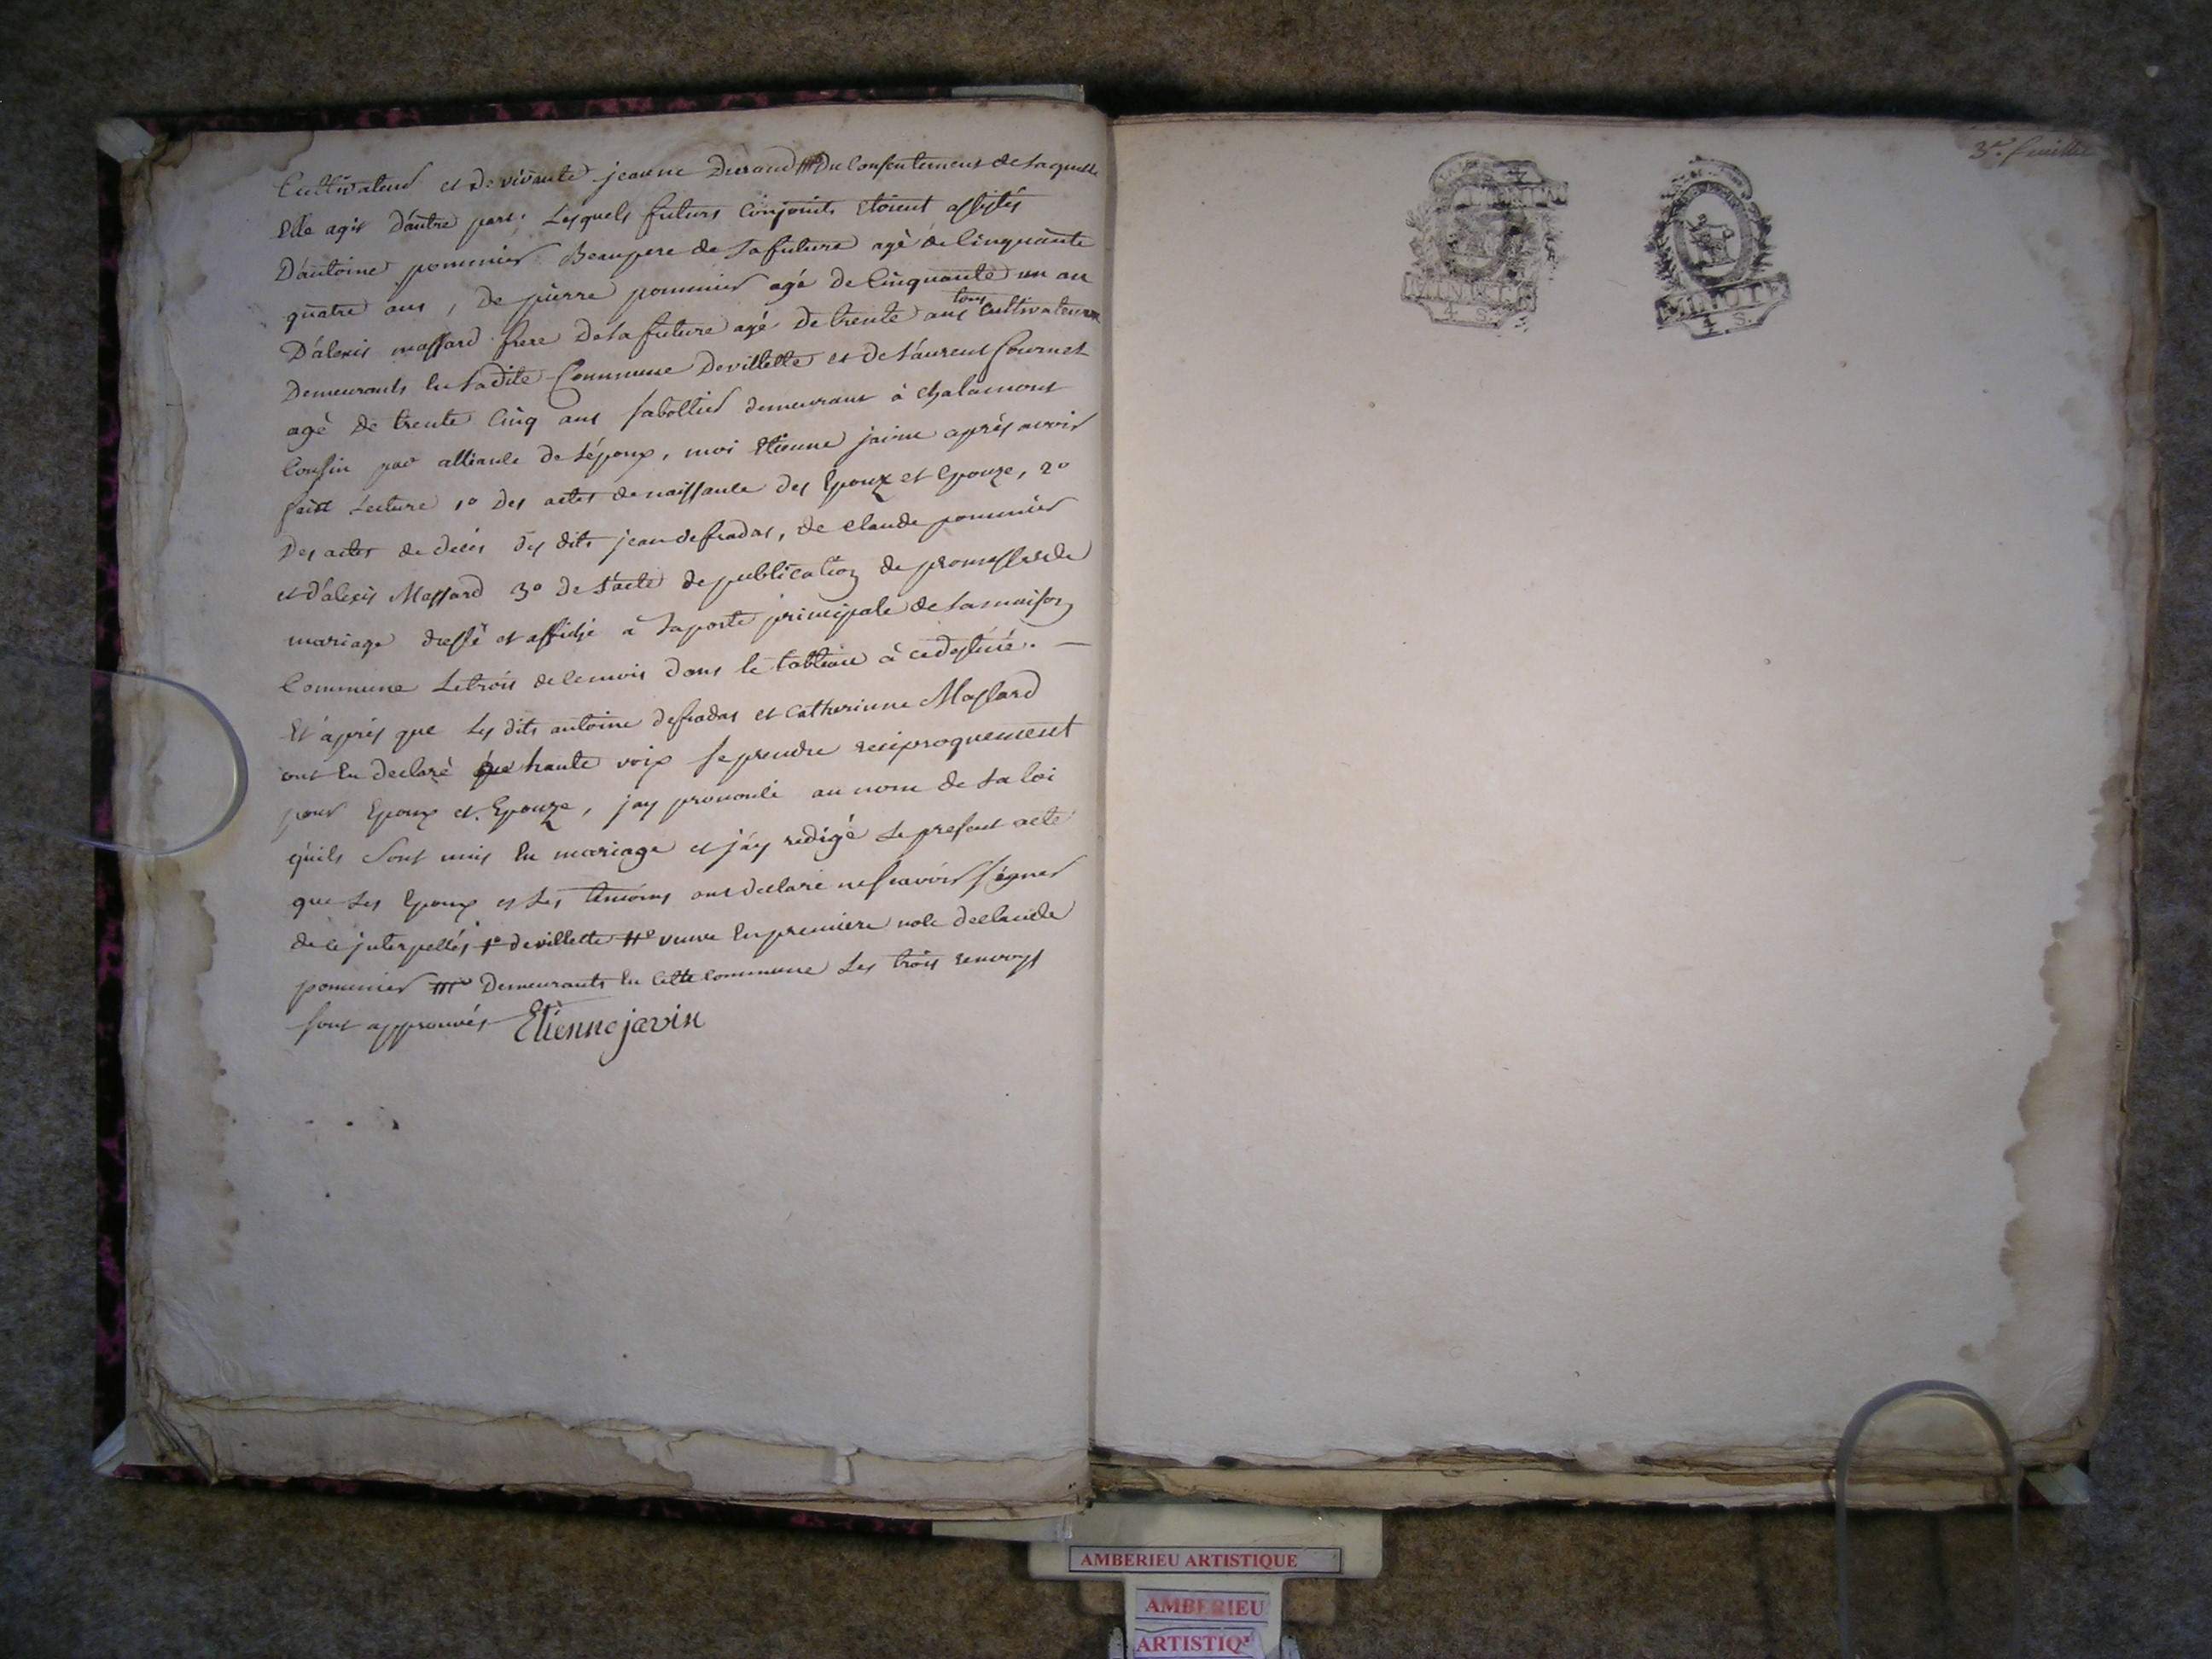 Cultivateur et de vivante jeanne Durand du Consentement de laquelle
Elle agit D'autre part. Lesquels futurs Conjoints etoient assistés
D'antoine pommier Beaupere de la future agé de Cinquante
quatre ans, De pierre pommier agé de Cinquante un an
D'alexis massard frere de la future agé De trente ans tous Cultivateurs
Demeurants En ladite Commune de villette et de Laurent Cournet
agé De trente Cinq ans sabottier demeurant à Chalamont
Cousin par alliance de l'époux, moi Etienne javin après avoir
fait Lecture 1º Des actes de naissance des Epoux et Epouze, 2º
Des actes de deces des dits jean defradas, de claude pommier
et d'alexis Massard 3º de l'acte de publication de promesse de
mariage dressé et affiché a la porte principale de la maison
Commune Le trois de ce mois dans le tableau à ce destiné. —
Et après que Les dits antoine defradas et Catherinne Massard
ont Eu declaré haute voix se prendre reciproquement
pour Epoux et Epouze, jay prononcé au nom de La loi
quils sont unis En mariage et j'ay redigé Le present acte
que Les Epoux et Les temoins ont declaré ne scavoir signer
de ce interpellés de villette veuve En premiere noce de claude
pommier Demeurants En Cette Commune Les trois renvoys
sont approuvés Etienne javin
3e. feuillet
MINUTE
4. S.
4. S.
AMBERIEU ARTISTIQUE
AMBERIEU
ARTISTIQ